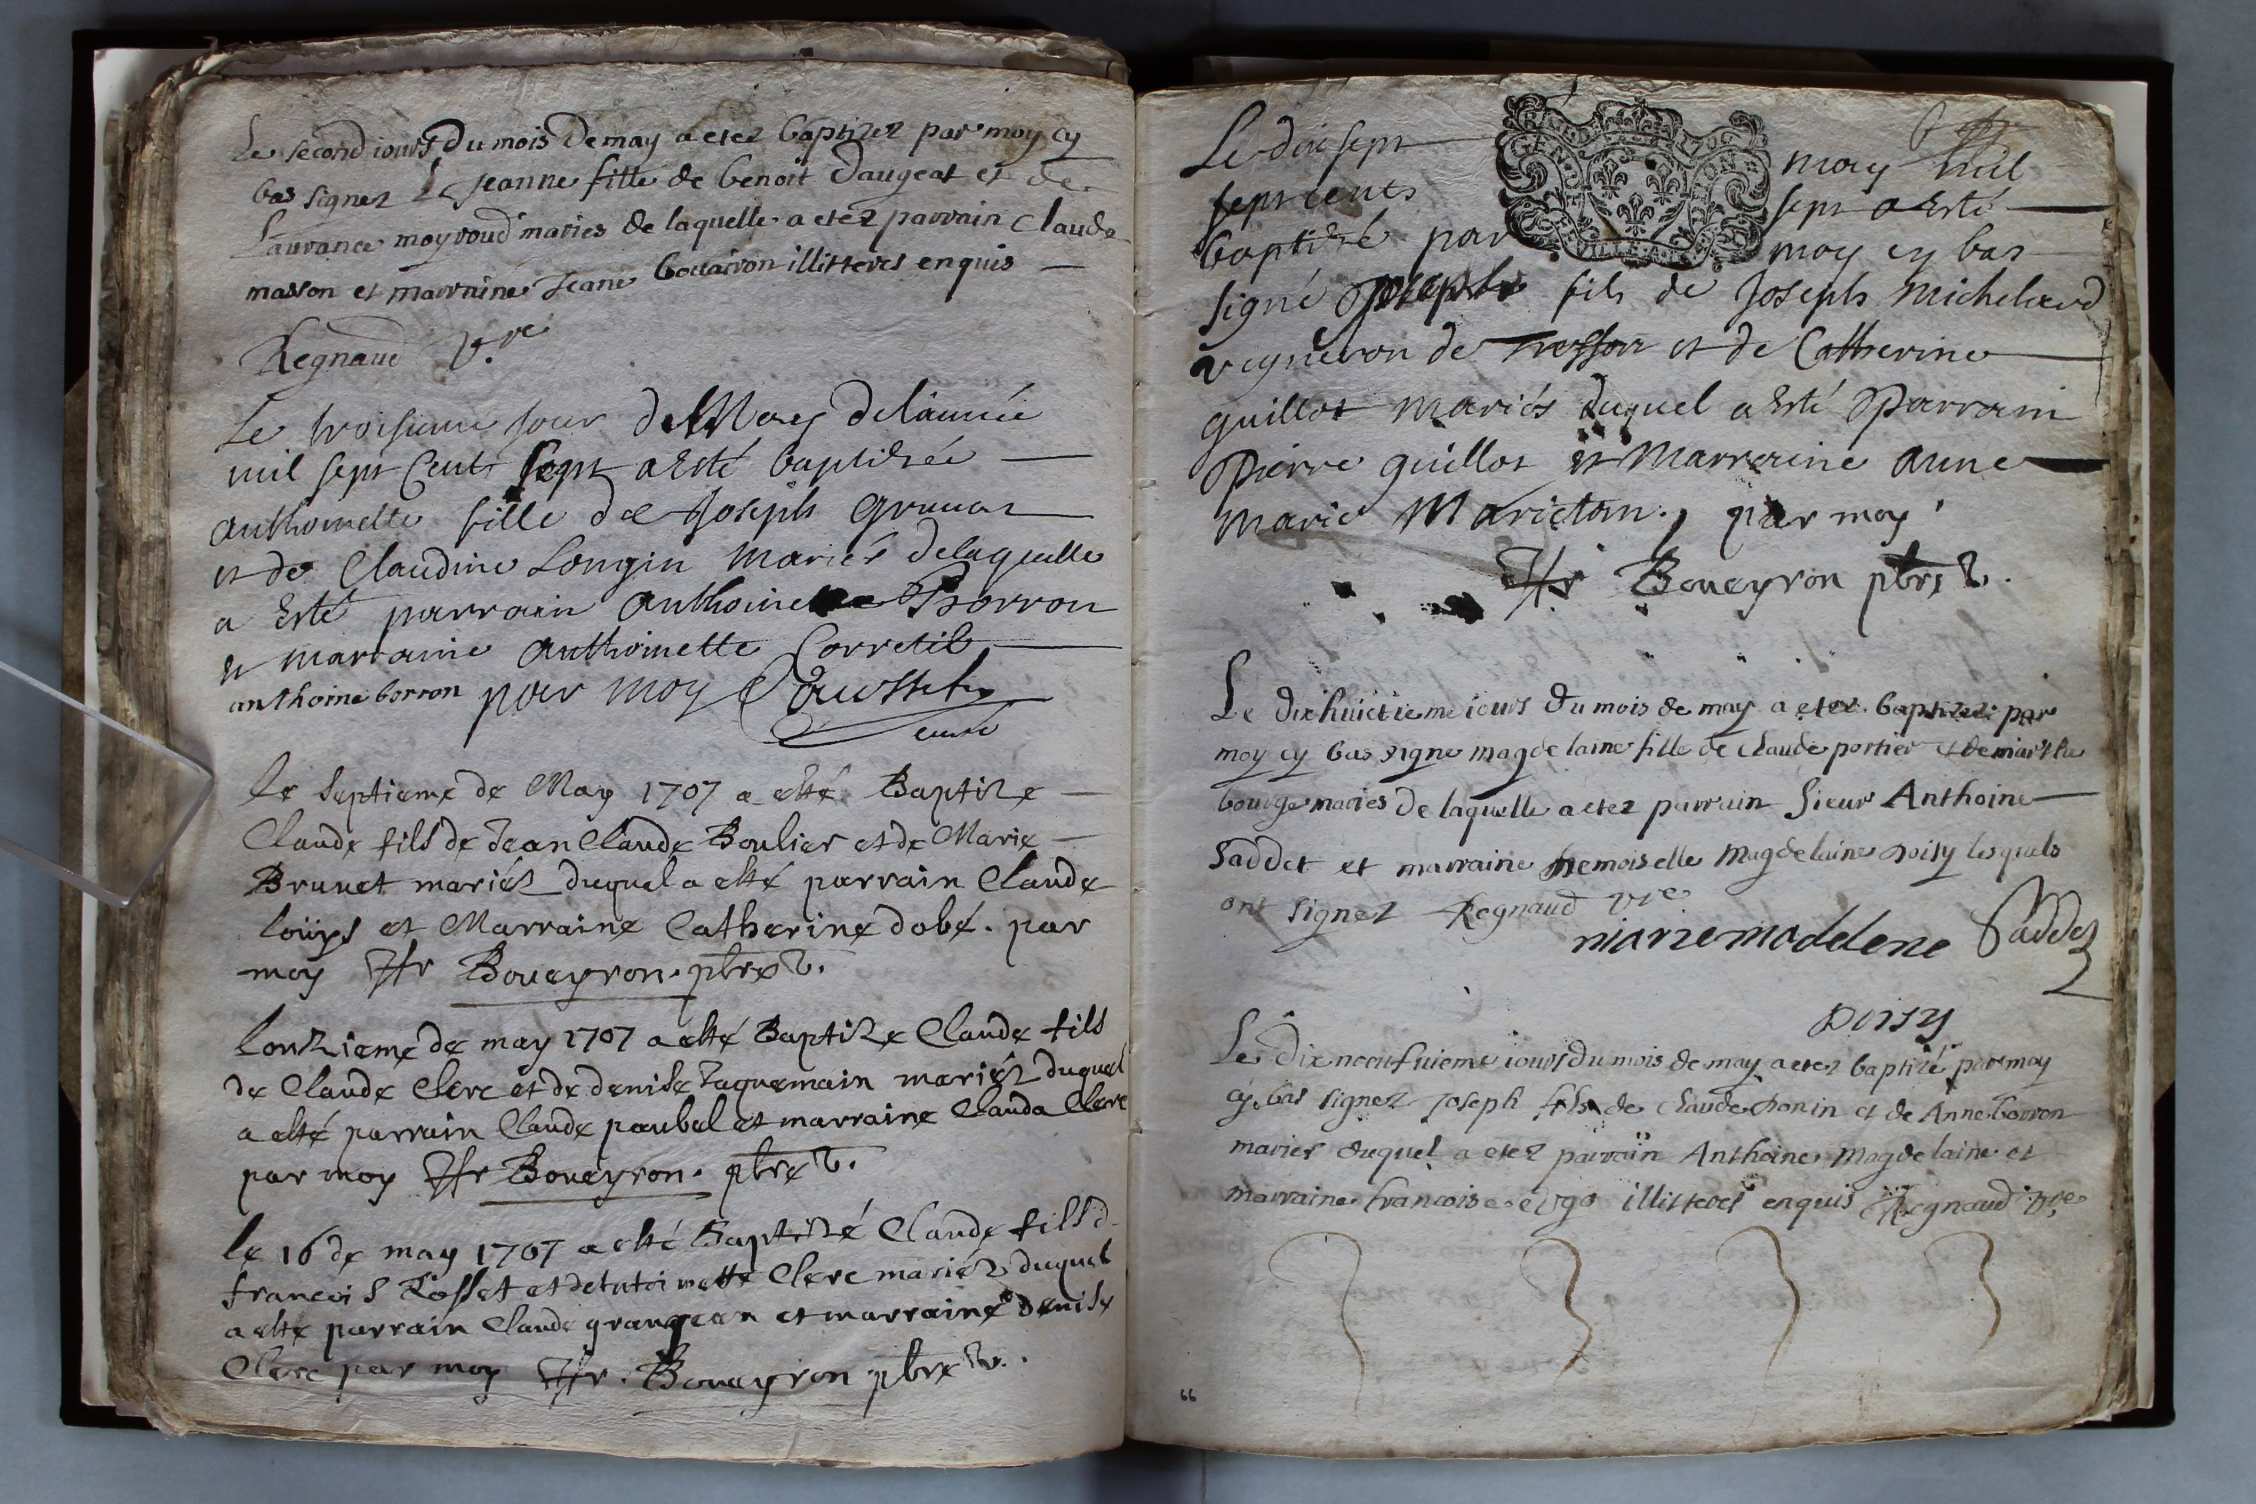 Le second iours Du mois De may a etez baptizez par moy cy
bas signez Jeanne fille de benoit Daugeat et de
Laurance moyroud maries de laquelle a etez parrain Claude
masson et marraine Jeane illitteres enquis
Regnaud V.re
Le troisieme jour de May de l'année
mil sept cents sept a esté baptizée
anthoinette fille de Joseph
et de Claudine Longin mariés de laquelle
a esté parrain anthoine Borron
et marraine anthoinette Corretil
anthoine borron par moy
curé
le septieme de May 1707 a esté Baptize
Claude fils de Jean Claude Boulier et de Marie
Brunet mariéz duquel a esté parrain Claude
loüys et Marraine Catherine dobé. par
moy Boueyron. pbre V.
lonzieme de may 1707 a esté Baptize Claude fils
de Claude Clerc et de denise Jaquemain mariéz duquel
a esté parrain Claude paubel et marraine Clauda Clerc
par moy Boueyron. pbre V.
le 16 de may 1707 a esté Baptizé Claude fils d
francois Rosset et de Clerc mariéz duquel
a esté parrain Claude grangean et marraine denise
Clerc par moy Boueyron pbre V.
Le dix sept may mil
sept cents sept a esté
baptizé par moy cy bas
signé Joseph fils de Joseph Michelard
vigneron de et de Catherine
guillot mariés duquel a esté Parrain
Pierre guillot et Marraine anne
marie Marietton. par moy
Boueyron pbre V.
Le dixhuictieme iours du mois de may a etez baptizez par
moy cy bas signe magdelaine fille de claude portier et de marthe
bouge maries de laquelle a etez parrain sieur Anthoine
saddet et marraine Demoiselle Magdelaine poisy lesquels
ont signez Regnaud Vre
marie madelene Saddez
poisy
Le Dixneeufvieme iours du mois de may a etez baptizé par moy
cy bas signez Joseph fils de claude chonin et de Anne borron
maries duquel a etez parrain Anthoine Magdelaine et
marraine francoise illitteres enquis Regnaud Vre
66